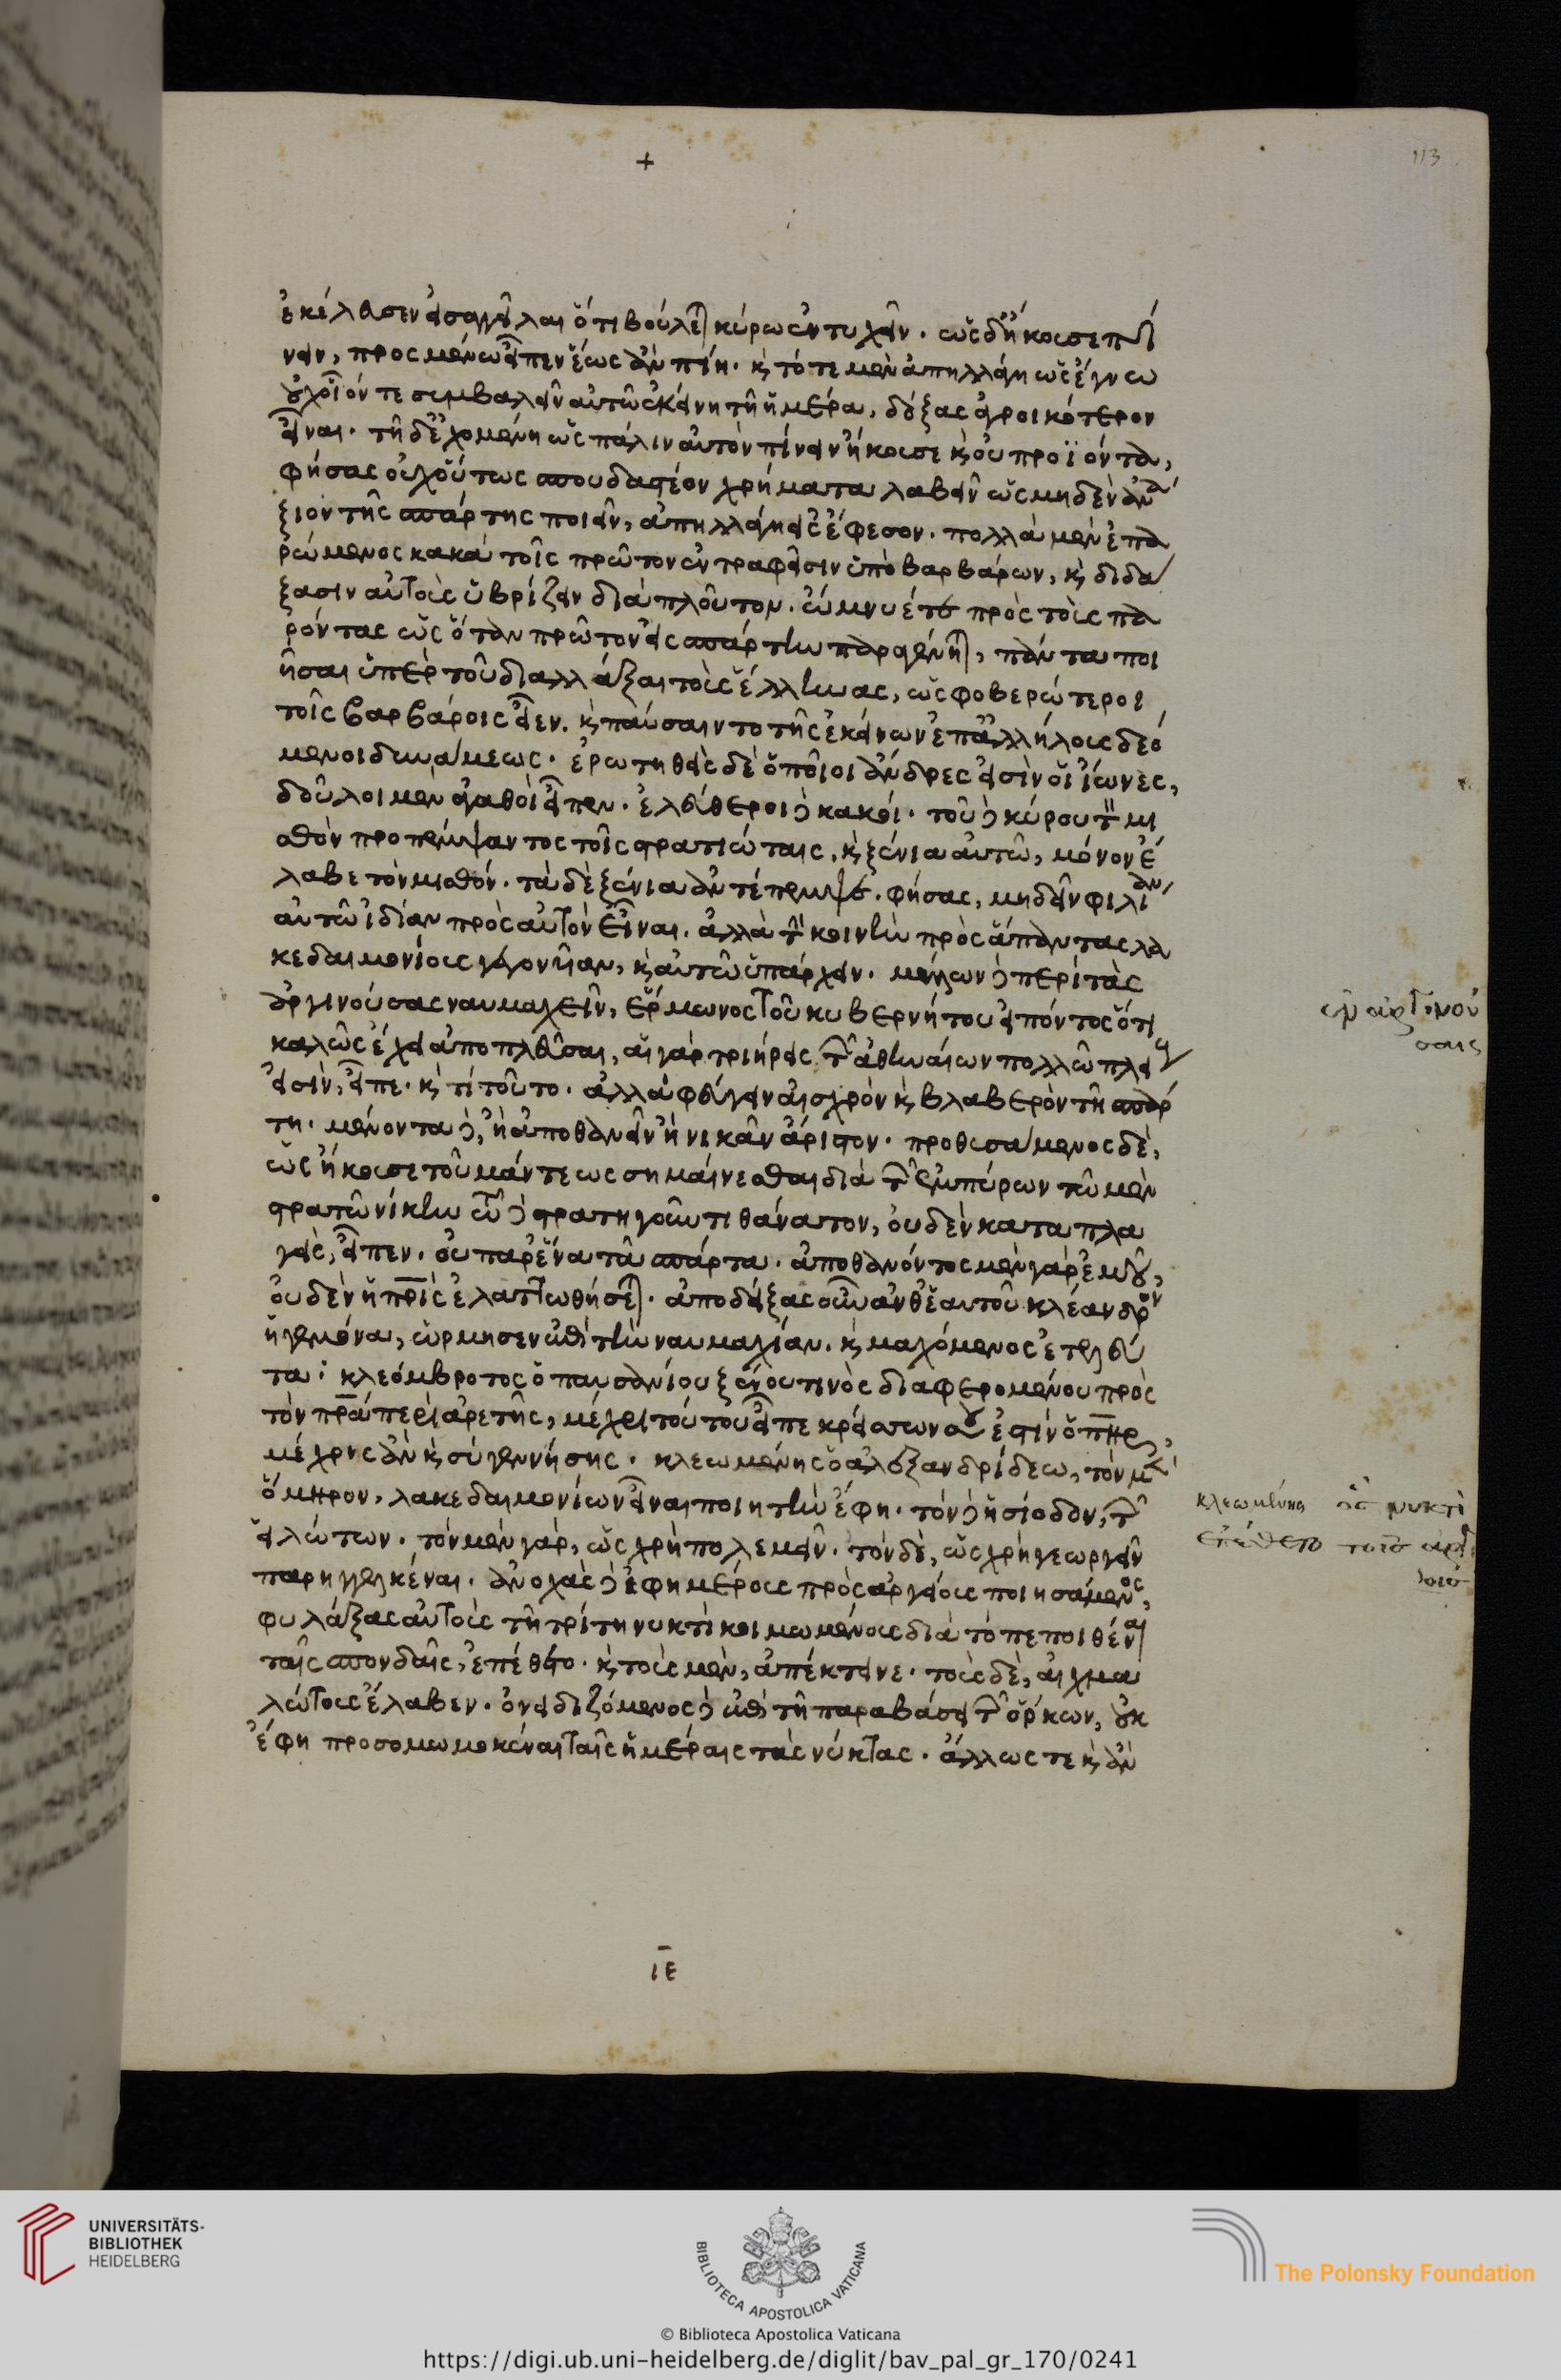 +
113
ἐκέλευσεν εἰσαγγεῖλαι ὅτι βούλεται κύρω ἐντυχεῖν. ὡς δ' ἤκουσε πί
νειν, προσμενῶ εἶπεν ἕως ἂν πίη. καὶ τότε μὲν ἀπηλλάγη ὡς ἔγνω
οὐχ οἷόν τε συμβαλεῖν αὐτῶ ἐκείνη τῆ ἡμέρα, δόξας ἀγροικότερον
εἶναι. τῆ δ' ἐχομένη ὡς πάλιν αὐτὸν πίνειν ἤκουσε καὶ οὐ προϊόντα,
φήσας οὐχ οὕτως σπουδαστέον χρήματα λαβεῖν ὡς μηδὲν ἀνά
ξιον τῆς σπάρτης ποιεῖν, ἀπηλλάγη εἰς ἔφεσον. πολλὰ μὲν ἐπα
ρώμενος κακὰ τοῖς πρῶτον ἐντραφεῖσιν ὑπὸ βαρβάρων, καὶ διδά
ξασιν αὐτοὺς ὑβρίζειν διὰ πλοῦτον. ὤμνυέ τε πρὸς τοὺς πα
ρόντας ὡς ὅταν πρῶτον εἰς σπάρτην παραγένηται, πάντα ποι
ῆσαι ὑπὲρ τοῦ διαλλάξαι τοὺς ἕλληνας, ὡς φοβερώτεροι
τοῖς βαρβάροις εἶεν. καὶ παύσαιντο τῆς ἐκείνων ἐπ' ἀλλήλους δεό
μενοι δυνάμεως. ἐρωτηθεὶς δὲ ὁποῖοι ἄνδρες εἰσὶν οἱ ἴωνες,
δοῦλοι μὲν ἀγαθοὶ εἶπεν. ἐλεύθεροι δὲ κακοί. τοῦ δὲ κύρου τὸν μι
σθὸν προπέμψαντος τοῖς στρατιώταις, καὶ ξένια αὐτῶ, μόνον ἔ
λαβε τὸν μισθόν. τὰ δὲ ξένια ἀντέπεμψε. φήσας, μὴ δεῖν φιλίαν
αὐτῶ ἰδίαν πρὸς αὐτὸν εἶναι. ἀλλὰ τὴν κοινὴν πρὸς ἅπαντας λα
κεδαιμονίους γεγονῆαν, καὶ αὐτῶ ὑπάρχειν. μέλλων δὲ περὶ τὰς
ἀργινούσας ναυμαχεῖν, ἕρμωνος τοῦ κυβερνήτου εἰπόντος ὅτι
καλῶς ἔχει ἀποπλεῦσαι, αἱ γὰρ τριήρεις τῶν ἀθηναίων πολλῶ πλεί
εἰσὶν, εἶπε. καὶ τί τοῦτο. ἀλλὰ φεύγειν αἰσχρὸν καὶ βλαβερὸν τῆ σπάρ
τη. μένοντα δὲ, ἢ ἀποθανεῖν ἢ νικᾶν ἄριστον. προθυσάμενος δὲ,
ὡς ἤκουσε τοῦ μάντεως σημαίνεσθαι διὰ τῶν ἐμπύρων τῶ μὲν
στρατῶ νίκην τῶ δὲ στρατηγοῦντι θάνατον, οὐδὲν καταπλα
γεὶς, εἶπεν. οὐ παρ' ἕνα τὰ σπάρτα. ἀποθανόντος μὲν γὰρ ἐμοῦ,
οὐδὲν ἡ πατρὶς ἐλαττωθήσεται. ἀποδείξας οὖν ἀνθ' ἑαυτοῦ κλέανδρον
ἡγεμόνα, ὥρμησεν ἐπὶ τὴν ναυμαχίαν. καὶ μαχόμενος ἐτελεύ
τα. κλεόμβροτος ὁ παυσανίου ξένου τινὸς διαφερομένου πρὸς
τὸν πατέρα περὶ ἀρετῆς, μέχρι τούτου εἶπε κρείσσων σου ἐστὶν ὁ πατὴρ,
μέχρις ἂν καὶ σὺ γεννήσης. κλεωμένης ὁ ἀλεξανδρίδεω, τὸν μὲν
ὅμηρον, λακεδαιμονίων εἶναι ποιητὴν ἔφη. τὸν δὲ ἡσίοδον, τῶν
εἱλώτων. τὸν μὲν γὰρ, ὡς χρὴ πολεμεῖν. τὸν δὲ, ὡς χρὴ γεωργεῖν
παρηγγελκέναι. ἀνοχὰς δὲ ἐφημέρους πρὸς ἀργείους ποιησάμενος,
φυλάξας αὐτοὺς τῆ τρίτη νυκτὶ κοιμωμένους διὰ τὸ πεποιθέναι
ταῖς σπονδαῖς, ἐπέθετο. καὶ τοὺς μὲν, ἀπέκτεινε. τοὺς δὲ, αἰχμα
λώτους ἔλαβεν. ὀνειδιζόμενος δὲ ἐπὶ τῆ παραβάσει τῶν ὅρκων, οὐκ
ἔφη προσομωμοκέναι ταῖς ἡμέραις τὰς νύκτας. ἄλλως τε καὶ ἂν
ἐν ἀργινού
σαις
κλεωμένης ὃς νυκτὶ
ἐπέθετο τοῖς ἀργεί
οις
ιε
UNIVERSITÄTS-
BIBLIOTHEK
HEIDELBERG
BIBLIOTECA APOSTOLICA VATICANA
The Polonsky Foundation
© Biblioteca Apostolica Vaticana
https://digi.ub.uni-heidelberg.de/diglit/bav_pal_gr_170/0241